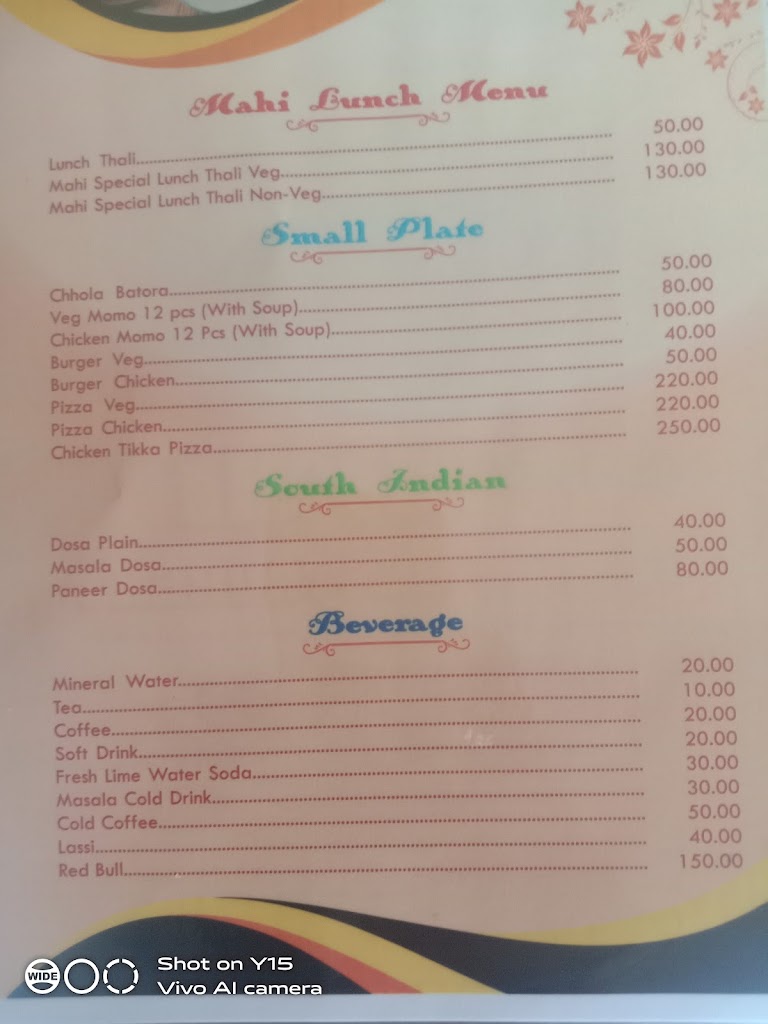 Mahi Lunch Menu
Lunch Thali 50.00
Mahi Special Lunch Thali Veg 130.00
Mahi Special Lunch Thali Non-Veg 130.00
Small Plate
Chhola Batora 50.00
Veg Momo 12 pcs (With Soup) 80.00
Chicken Momo 12 Pcs (With Soup) 100.00
Burger Veg 40.00
Burger Chicken 50.00
Pizza Veg 220.00
Pizza Chicken 220.00
Chicken Tikka Pizza 250.00
South Indian
Dosa Plain 40.00
Masala Dosa 50.00
Paneer Dosa 80.00
Beverage
Mineral Water 20.00
Tea 10.00
Coffee 20.00
Soft Drink 20.00
Fresh Lime Water Soda 30.00
Masala Cold Drink 30.00
Cold Coffee 50.00
Lassi 40.00
Red Bull 150.00
WIDE
Shot on Y15
Vivo AI camera